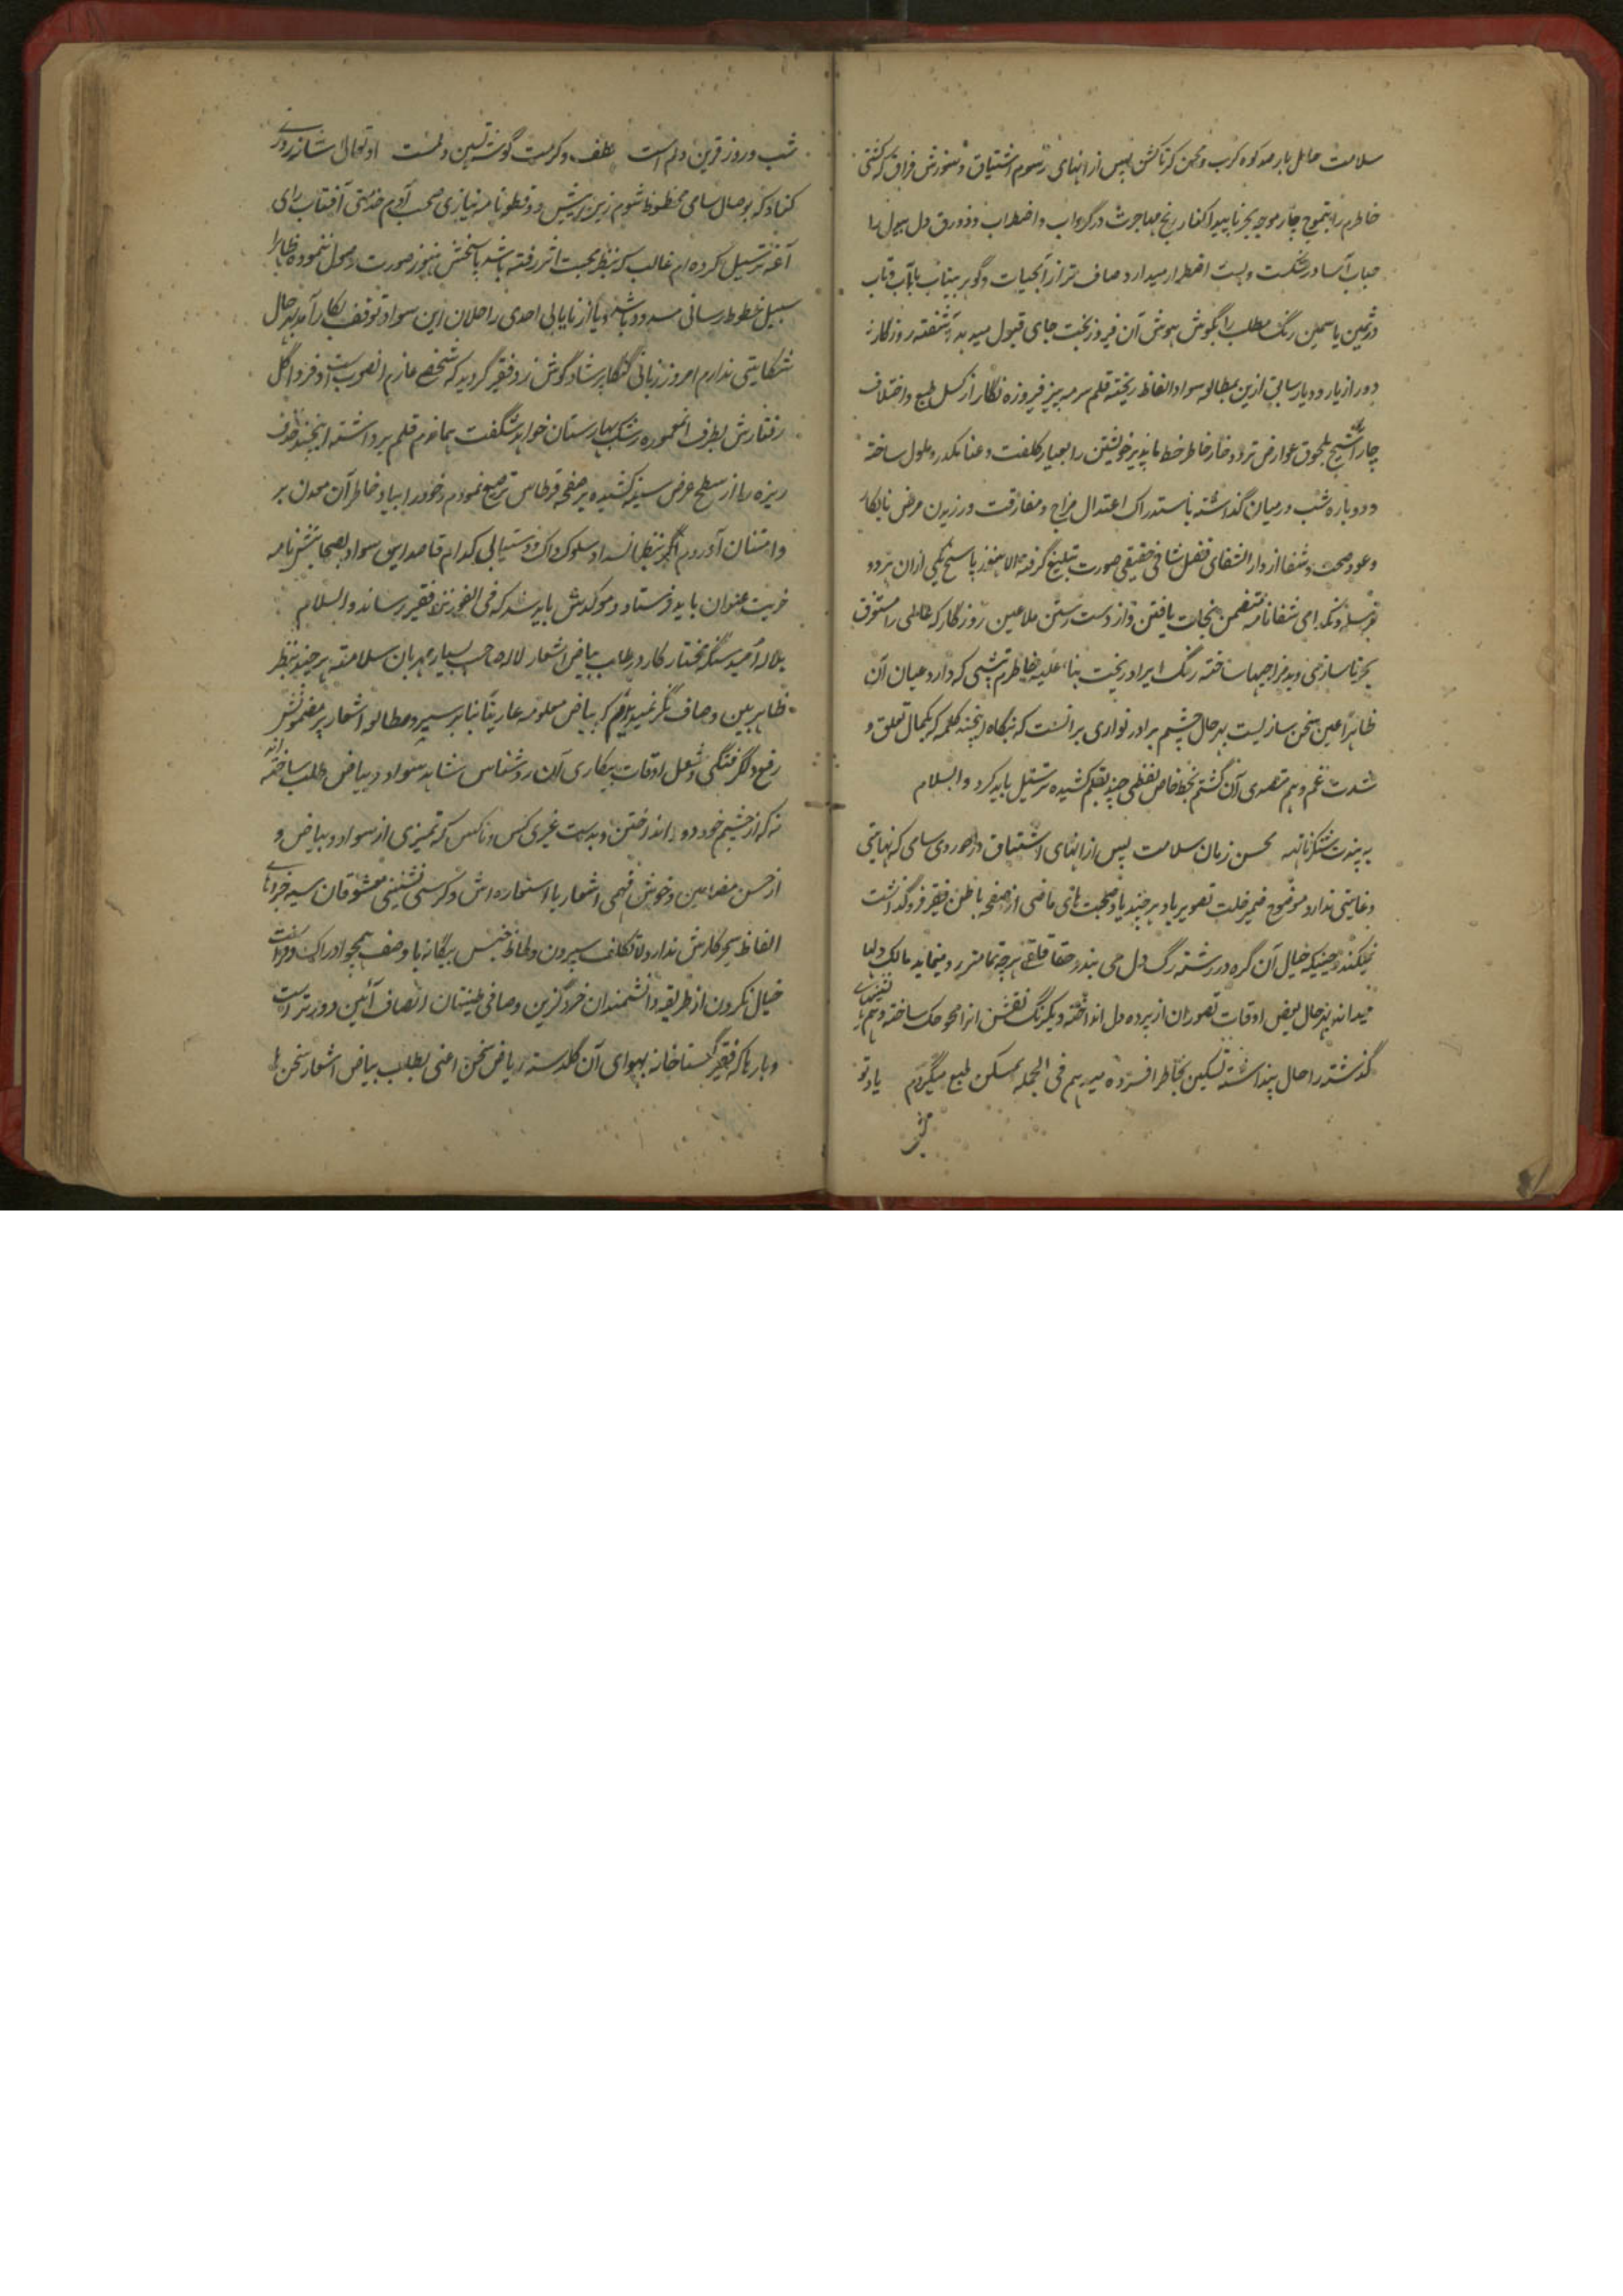 سلامت حامل بار صد کوه کرب و محن کرتاکشن پس از انهای رسوم اشتیاق و سوزش فراق که کشتی
خاطرم را بتموج چار موجه بحر ناپیدا کنار رنج مهاجرت در گرداب و اضطراب و زورق دل بیدل را
حباب آسا در شکست و بست اضطرار میدارد صاف تر از آبحیات و گوهر بیتاب با آب و تاب
در ثمین یاسمین رنگ مطلب را بگوش هوش آن فیروز بخت جای قبول میدهد آشفته روزگار
دور از یار و دیار سابق ازین بمطالعه سواد الفاظ ریخته قلم سرمه بیز فیروزه نگار از کسل طبع و اختلاف
چار بلحوق عوارض تردد خار خار خاطر خط ناپذیر خویشتن را بعیار کلفت و عنا مکدر و ملول ساخته
دوباره شب در میان گذاشته باستدراک اعتدال مزاج و مفارقت ورزیدن مرض نابکار
و عود صحت و شفا از دار الشفای فضل شافی حقیقی صورت تبلیغ گرفته حالا هنوز پاسخ یکی ازان هر دو
نرسیده شفانامه متضمن نجات یافتن و از دست رستن ملاعین روزگار که عالمی را مستغرق
بحر ناسازی و بدمزاجیها ساخته رنگ ایراد ریخت بناء علیه خاطرم تپشی که دارد عیان آن
ظاهرا عین سخن سازیست بهر حال چشم برادر نوازی برانست که بنگاه اینچند کلمه که بکمال تعلق و
شدت غم و هم متصدی آن گشتم بخط خاص لفظی چند بقلم کشیده ترسیل باید کرد والسلام
به پندت شنکرناتهه محسن زمان سلامت پس از انهای اشتیاق دلجوردی سامی که نهایتی
و غایتی ندارد موضوع ضمیر خلت تصویر باد هر چند یاد صحبت های ماضی از صفحه باطن فقیر فروگذاشت
نمیکند و حینیکه خیال آن گره در رشته رگ دل می بندد حقا قلقی هر چه تمامتر رو مینماید مالک دلها
میداند بهر حال بعض اوقات تصور آن از پرده دل انداخته و یکرنگ نقش آنرا محو حک ساخته و هم
گذشته را حال پنداشته تسکین بخاطر افسرده میدهم فی الجمله مسکن طبع میگردم یاد تو
شب و روز قرین دلم است لطف و کرمت گوشه نشین دلمست او تعالی شانه روزی
کناد که بوصال سامی محظوظ شوم زین پیش دو قطعه نامه نیازی صحب آدم خدمتی آفتاب رای
آغه ترسیل کرده ام غالب که بنظر محبت اثر در رفته باشد پاسخش هنوز صورت وصول ننموده ظاهرا
سبیل خطوط رسانی مسدود باشد و یا از نایابی احدی راحلان این سواد توقف بکار آمد بهر حال
شکایتی ندارم امروز زبانی گنگا پرشاد گوش زد فقیر گردید که شخصی عازم انصوب است و فردا گل
رفتارش بطرف انمعموره رشک بهارستان خواهد شگفت هماندم قلم برداشته اینچند خزف
ریزه را از سطح عرض سینه کشیده بر صفحه قرطاس ترصیع نمودم و خود را بیاد خاطر آن معدن بر
و امتنان آوردم اگر بنظر انسداد سلوک داک و دستیابی کدام قاصد این سواد بصحابتش نامه
خریت عنوان باید فرستاد و موکدش باید شد که فی الفور نزد فقیر رساند والسلام
بلاله امید سنگه مختار کار در طلب بیاض اشعار لاله صاحب بسیار مهربان سلامت هر چند بنظر
ظاهربین و صاف نگر نمیدیدم که بیاض معلومه عاریتا بنابر سیر و مطالعه اشعار پر مضمونش
رفع دلگرفتگی و شغل اوقات بیکاری آن روشناس شاهد سواد و بیاض طلب ساخته اند
نه که از چشم خود دور انداختن و بدست غیری کس و ناکس که تمیزی از سواد و بیاض و
از حسن مضامین و خوش فهمی اشعار با استعاره اش و کرسی نشینی معشوقان سیه چرده
الفاظ سحرکارش ندارد لا تکلف سپردن و لحاظ جنس بیگانه با وصف همچو ادراک و فراست
خیال نکردن از طریقه دانشمندان خردگزین و صافی طینتان انصاف آئین دورتر است
و بارها که فقیر گستاخانه بهوای آن گلدسته ریاض سخن اعنی بطلب بیاض اشعار سخن